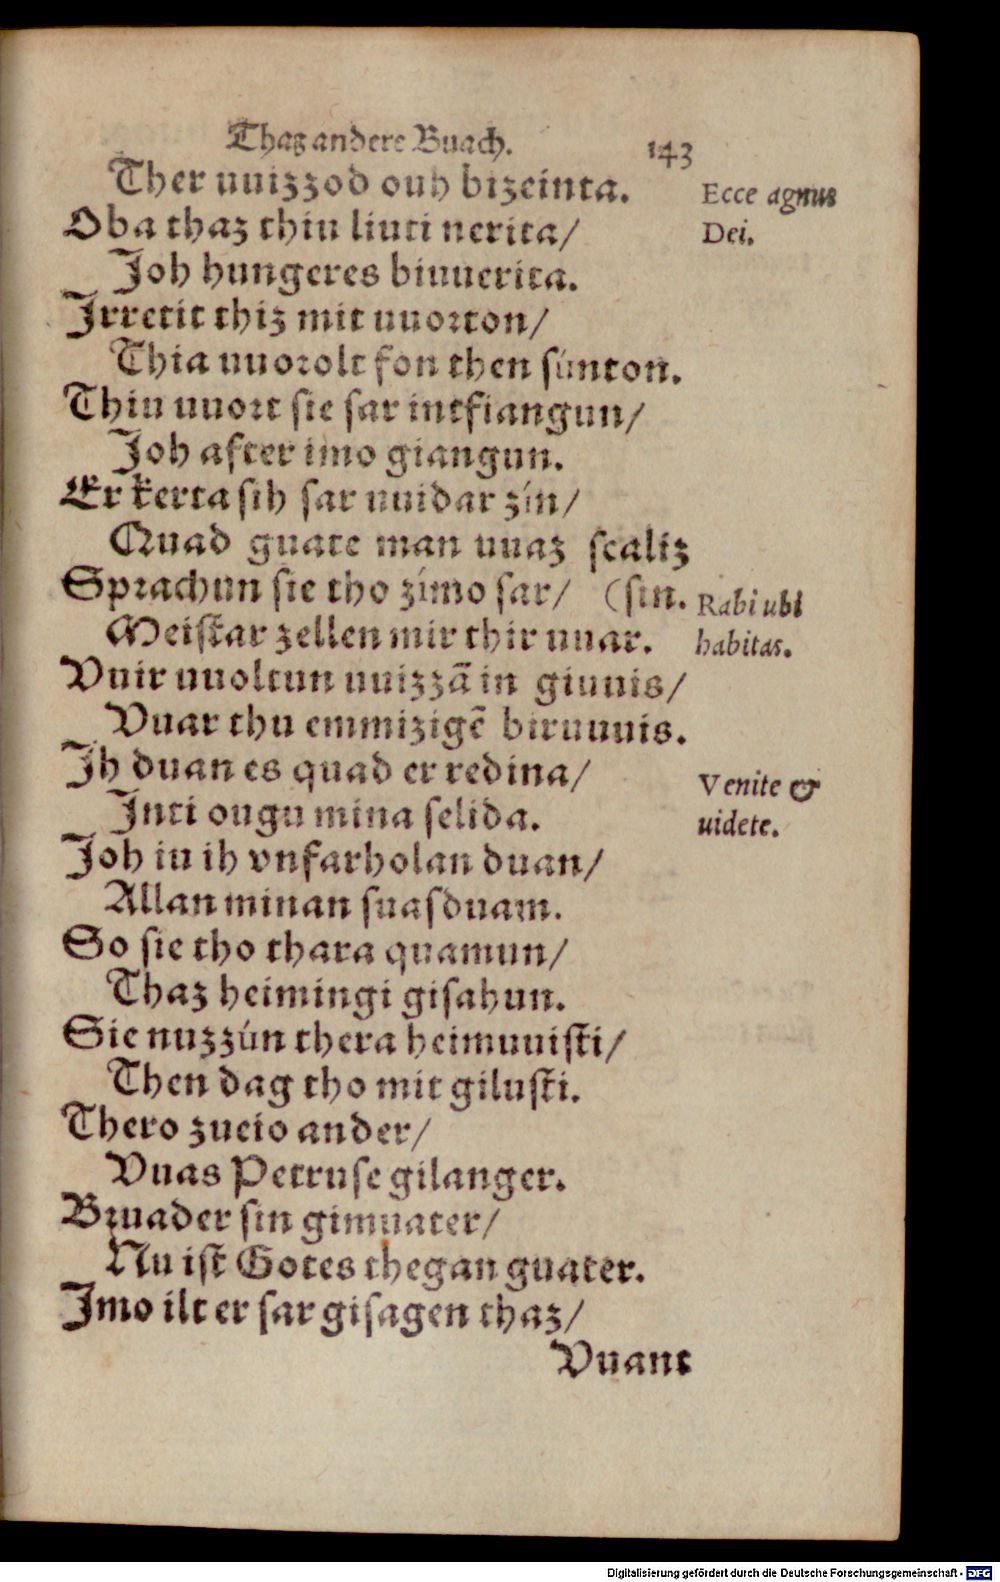 Thaz andere Buach. 143
Ther uuizzod ouh bizeinta.
Ecce agnus
Oba thaz thiu liuti nerita/
Dei.
Joh hungeres biuuerita.
Jrretit thiz mit uuorton/
Thia uuorolt fon then súnton.
Thiu uuort sie sar intfiangun/
Joh after imo giangun.
Er kerta sih sar uuidar zín/
Quad guate man uuaz scaliz
Sprachun sie tho zímo sar/ (sin.
Rabi ubi
Meistar zellen mir thir uuar.
habitas.
Vuir uuoltun uuizzā in giuuis/
Vuar thu emmizigē biruuuis.
Jh duan es quad er redina/
Venite &
Jnti ougu mina selida.
uidete.
Joh iu ih vnfarholan duan/
Allan minan suasduam.
So sie tho thara quamun/
Thaz heimingi gisahun.
Sie nuzzún thera heimuuisti/
Then dag tho mit gilusti.
Thero zueio ander/
Vuas Petruse gilanger.
Bruader sin gimuater/
Nu ist Gotes thegan guater.
Jmo ilt er sar gisagen thaz/
Vuant
Digitalisierung gefördert durch die Deutsche Forschungsgemeinschaft - DFG